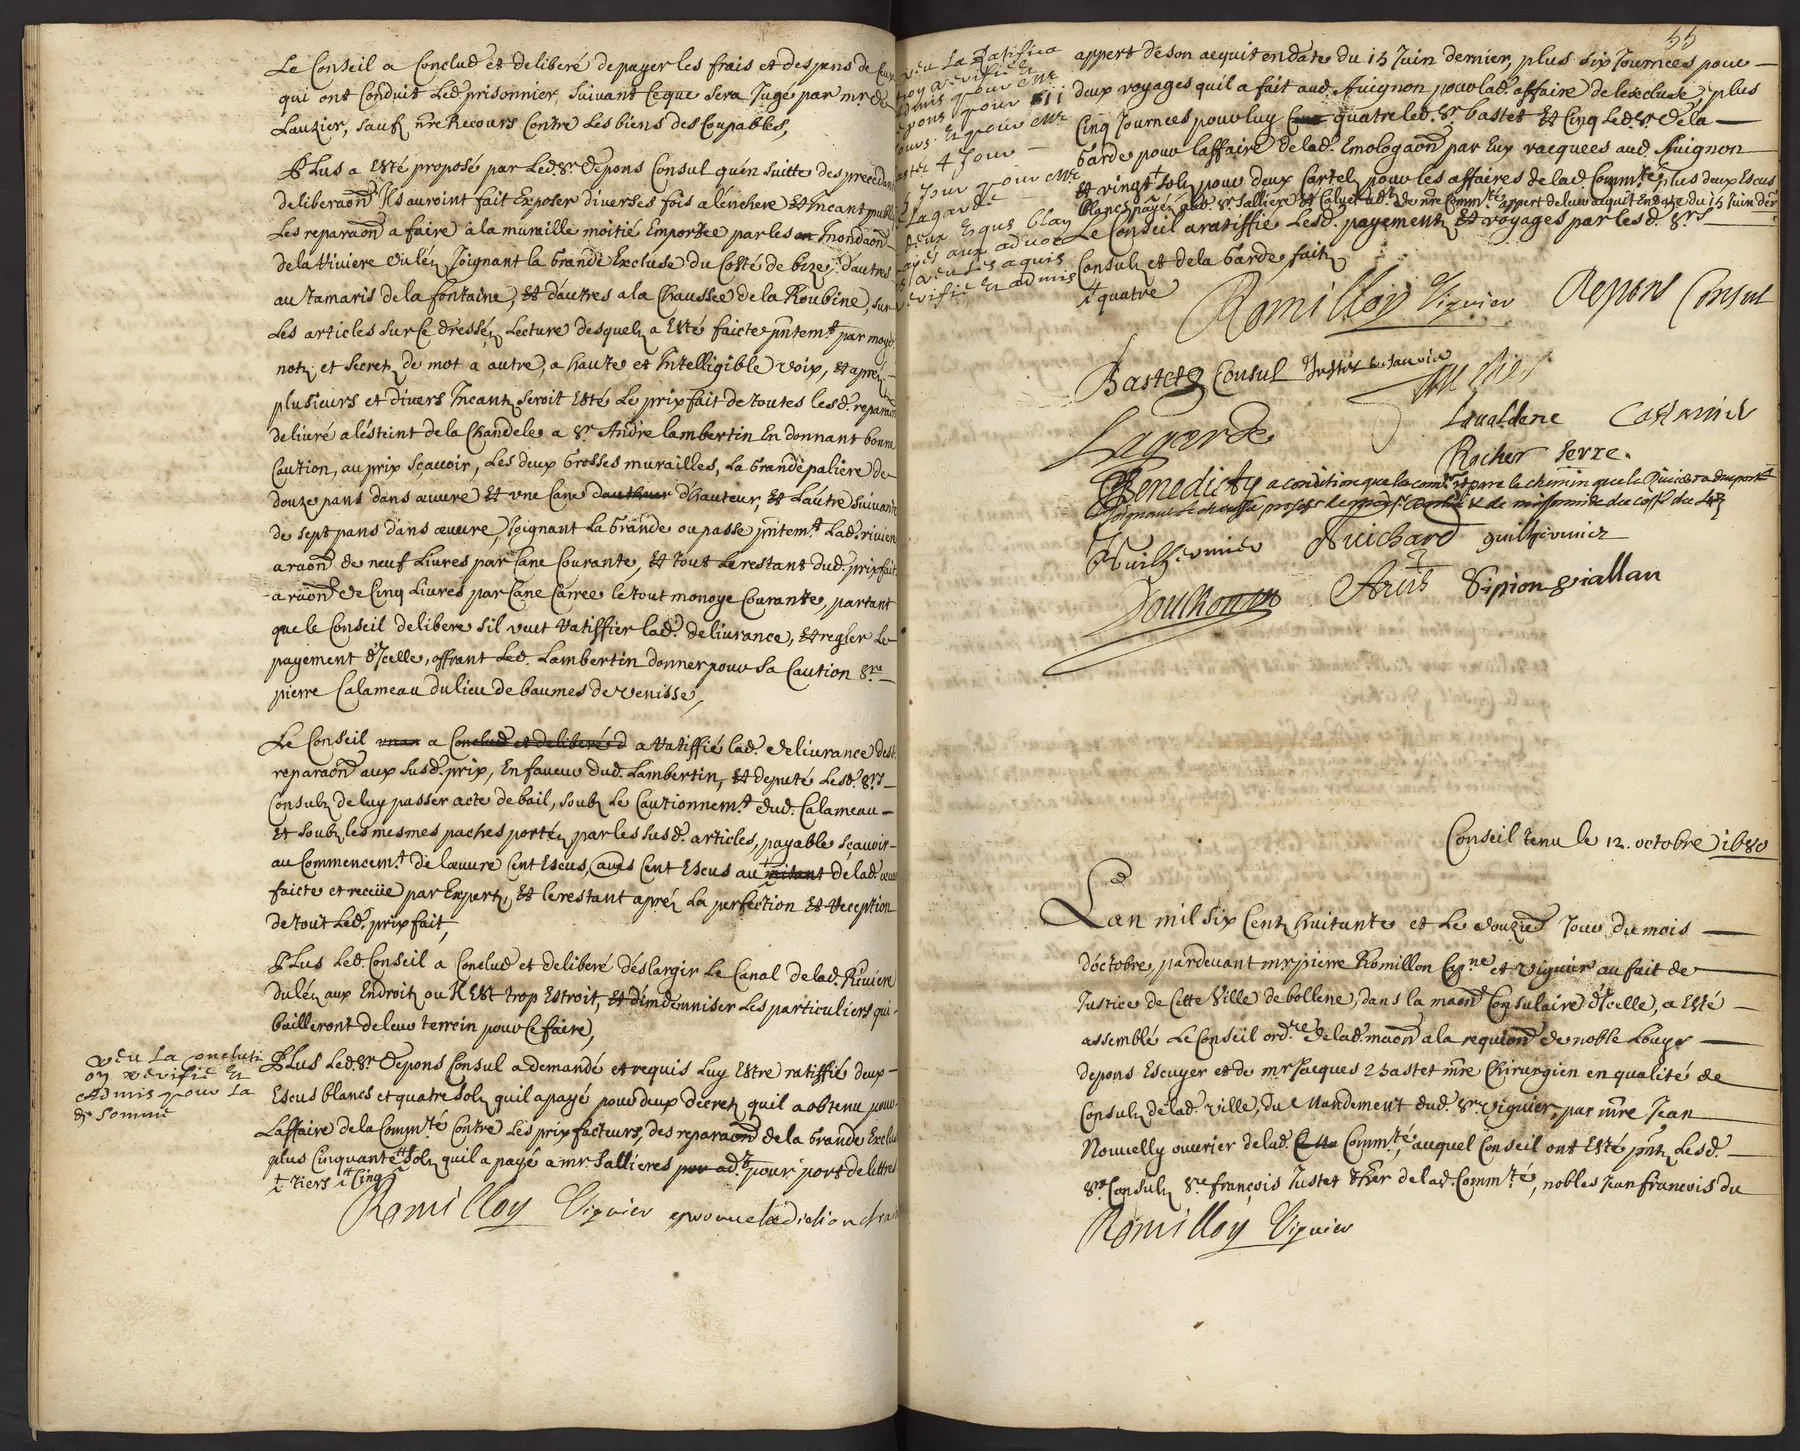 Le Conseil a Conclud et deliberé de payer les frais et despans de
qui ont Conduit Led. prisonnier, suivant Ceque sera Jugé par mr. de
Lauzier, sauf nre Recours Contre Les biens des Coupables,
Plus a Esté proposé par Led. Sr. Depons Consul qu'en suitte des precedan
deliberaons Ils auroint fait Exposer diverses fois a lenchere et Incant publi
Les reparaons a faire a la muraille moitié Emportée par les Inondaons
de la Riviere du léz Joignant la Grande Excluse du Costé de bize, d'autres
au tamaris de la fontaine, Et d'autres a la Chaussée de la Roubine, sur
Les articles sur Ce dressés, Lecture desquelz a Esté faicte pntemt. par moy
notre et Secretre de mot a autre, a haute et Intelligible voix, et aprés
plusieurs et divers Incantz seroit Esté Le prix fait de toutes lesd. reparaons
delivré a lésteint de la Chandele a Sr. André lambertin En donnant bonne
Caution, au prix sçavoir, Les deux Grosses murailles, La Grande paliere de
douze pans dans œuvre et une Cane dautheur d'hauteur, et Lautre suivante
de sept pans dans œuvre, Joignant La Grande ou passe pntemt. Lad. riviere
a raon de neuf Livres par Cane Courante, Et tout Le restant dud. prix fait
a raon de Cinq Livres par Cane Carrée le tout monoye Courante, partant
que le Conseil delibere sil veut Ratiffier lad. delivrance, et regler Le
payement d'Icelle, offrant Led. Lambertin donner pour sa Caution Sre
pierre Calameau du lieu de baumes de venisse,
Le Conseil a Conclud et deliberé d a Ratiffié lad. delivrance desd.
reparaons aux susd. prix, En faveur dud. Lambertin, et deputé Lesd. Srs
Consulz de luy passer acte de bail, soubz Le Cautionnemt. dud. Calameau
et soubz les mesmes paches portés par les susd. articles, payable sçavoir
au Commencemt. de lœuvre Cent Escus, aues Cent Escus au mitant de lad. œuvre
faicte et receüe par Expertz, Et le restant aprés La perfection et Reception
de tout Led. prix fait,
Plus Led. Conseil a Conclud et deliberé déslargir Le Canal de lad. Riviere
du léz aux Endroitz ou Il Est trop Estroit, et d'indemniser Les particuliers qui
bailleront de leur terrein pour Ce faire,
veu La Concluti
on verifié Et
Admis pour La
de somme
Plus Led. Sr. Depons Consul a demandé et requis Luy Estre ratiffié deux
Escus blancs et quatre solz quil a payé pour deux decretz quil a obtenu pour
Laffaire de la Commté. Contre Les prix facteurs des reparaons de la Grande Excluse
plus Cinquante solz quil a payé a mr. Sallieres par adt. pour port de littres
tiers Cinq
Romilloy Viguier
55
veu La Ratifica
on verifié Et
Admis pour Mr.
Depons pour 511
Jours Et pour Mr.
Bastet 4 Jour
5 Jour pour Mr.
Lagarde
deux Esqus blan
payés aux advoc
veu Les aquis
verifié Et admis
appert de son acquit en date du 15 Juin dernier, plus six Journées pour
deux voyages quil a fait aud. Avignon pour lad. affaire de lexcluse, plus
Cinq Journées pour luy Cinq quatre led. Sr. bastet et Cinq Led. Sr. de la
Garde pour Laffaire de lad. Emologaon par Eux vacquees aud. Avignon
et vingt solz pour deux Cartelz pour les affaires de lad. Commté. plus deux Escus
blancs payés aud. Sr. Salliere et Calvet adts. de nre Commté appert de leur acquit en date du 15 Juin der
Le Conseil a ratiffié Lesd. payementz Et voyages par lesd. Srs
Consulz et de la Garde faitz
quatre
Romilloy Viguier Depons Consul
Bastet Consul
Lagarde
Lavaldene
Rocher Serre.
Benedicty a condition que la com.te repare le chemin que la Riviere a emporté
Guilhermier Guichard guilhermier
Arvis Sipion Viallan
Conseil tenu le 12. octobre 1680
Lan mil six Centz huitante et Le douzie Jour du mois
d'octobre pardevant mr pierre Romillon Capne et Viguier au fait de
Justice de Cette Ville de bollene, dans la maon Consulaire d'Icelle, a Esté
assemblé Le Conseil ordre de lad. maon a la requion de noble Louys
depons Escuyer et de mr Jacques Bastet mre Chirurgien en qualité de
Consulz de lad. ville, du Mandement dud. Sr. Viguier, par mre Jean
Nouvelly ouvrier de lad. Commté, auquel Conseil ont Esté pntz Lesd.
Srs Consulz Sre françois Justet thrér de lad. Commté, nobles Jean francois du
Romilloy Viguier